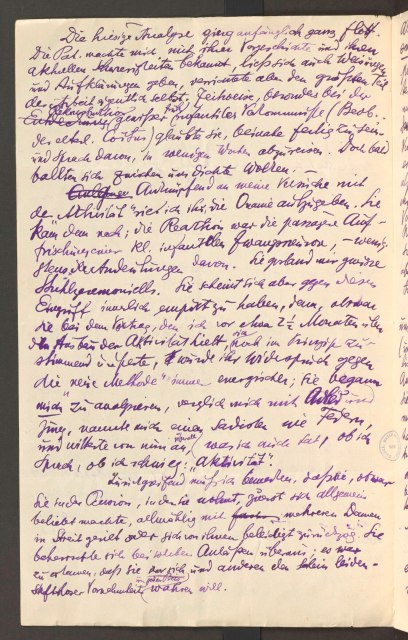 Die hiesige Analyse gieng anfänglich ganz flott.
Die Pat. machte mich mit ihrer Vorgeschichte und ihren
aktuellen bekannt, liess sich auch Weisungen
und Aufklärungen geben, verrichtete aber den größten Teil
der Arbeit eigentlich selbst. Zeitweise, besonders bei der
Rekonstruktion gewisser früh infantiler Vorkommnisse (Beob.
des elterl. Coitus) glaubte sie, beinahe fertig zu sein
und sprach davon, in wenigen Wochen abzureisen. Doch bald
ballten sich zwischen uns dichte Wolken. –
Anknüpfend an meine Versuche mit
der "Aktivität" riet ich ihr, die Onanie aufzugeben. Sie
kam dem nach; die Reaktion war die passagere Auf-
frischung einer kl. infantilen Zwangsneurose, – wenig-
stens der Andeutungen davon. Sie gewisse
Stuhlzeremoniells. Sie scheint sich aber gegen diesen
Eingriff innerlich empört zu haben, denn, obzwar
sie bei dem Vortrag, den ich vor etwa 2½ Monaten über
den Ausbau der Aktivität hielt, sich noch im Prinzip zu-
stimmend äusserte, wurde ihr Widerspruch gegen
die "neue Methode" immer energischer; sie begann
mich zu analysieren, verglich mich mit Adler und
Jung, nannte mich einen Sadisten wie Jeden,
und witterte von nun an überall (was ich auch tat, ob ich
sprach, ob ich schwieg:) "Aktivität".
Zurückgreifend muss ich bemerken, dass sie, obzwar
sie in der Pension, in der sie wohnt, zuerst sich allgemein
beliebt machte, allmählig mit mehreren Damen
in Streit geriet oder sich von ihnen beleidigt zurückzog. Sie
beherrschte sich bei solchen Anlässen überaus, es war
zu erkennen, dass sie vor sich und anderen den Schein leiden-
schaftsloser Vornehmheit in jeder wahren will.